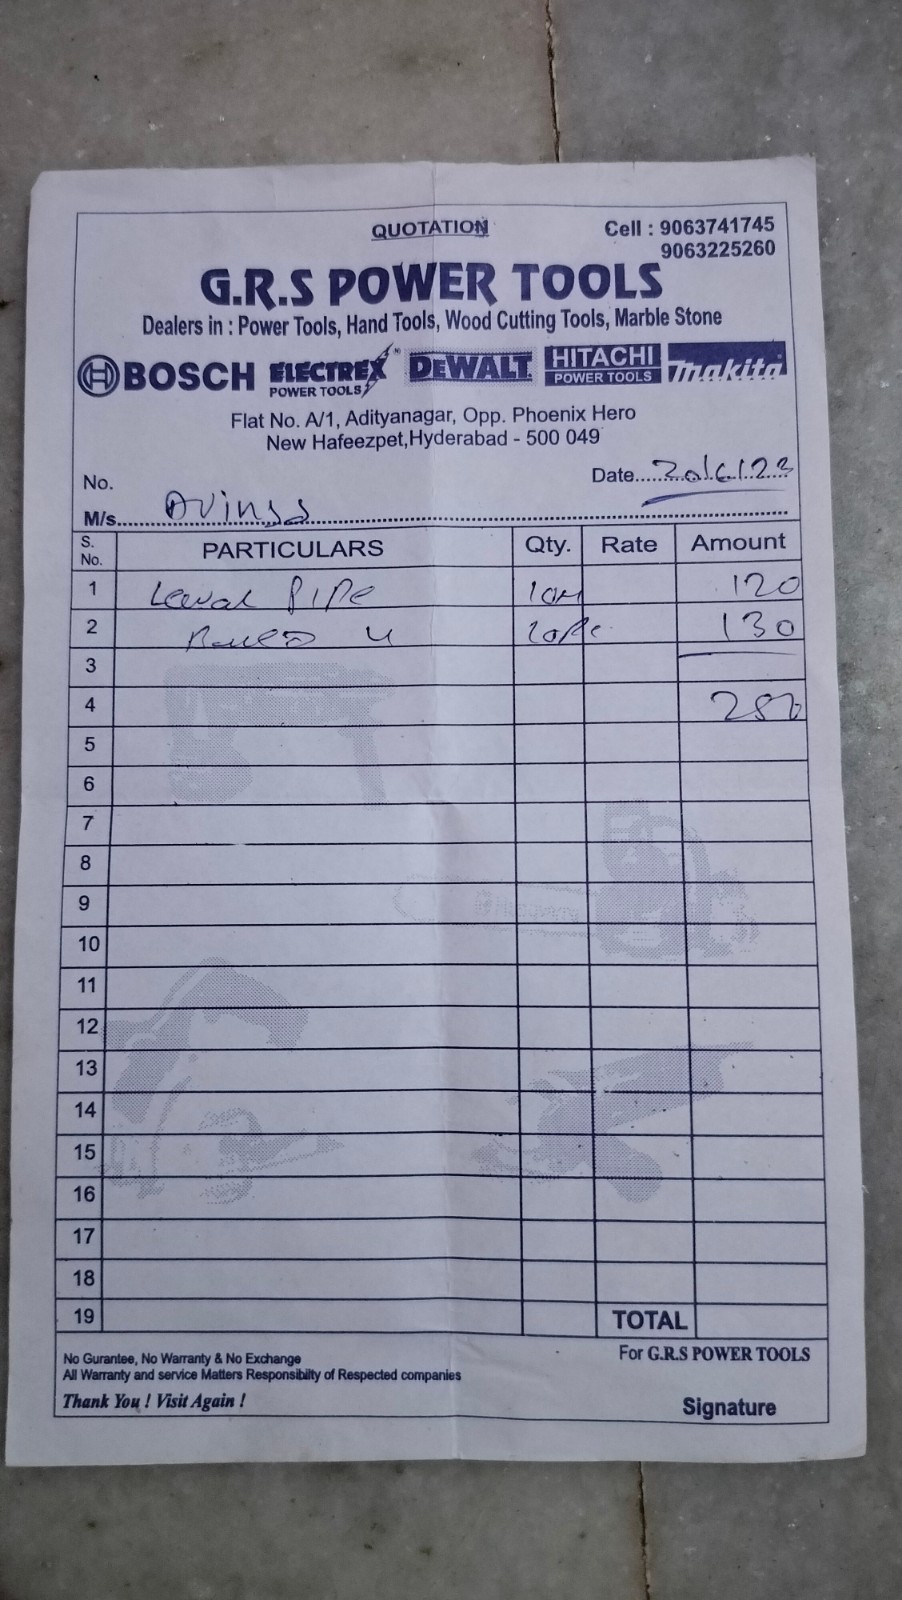 QUOTATION
Cell : 9063741745
9063225260
G.R.S POWER TOOLS
Dealers in : Power Tools, Hand Tools, Wood Cutting Tools, Marble Stone
BOSCH ELECTREX POWER TOOLS DEWALT HITACHI POWER TOOLS makita
Flat No. A/1, Adityanagar, Opp. Phoenix Hero
New Hafeezpet,Hyderabad - 500 049
No.
Date 20/6/23
M/s
S. No. PARTICULARS Qty. Rate Amount
1 Leval PIPe 10M 120
2 4 130
3
4 250
5
6
7
8
9
10
11
12
13
14
15
16
17
18
19 TOTAL
No Gurantee, No Warranty & No Exchange
All Warranty and service Matters Responsibilty of Respected companies
Thank You ! Visit Again !
For G.R.S POWER TOOLS
Signature